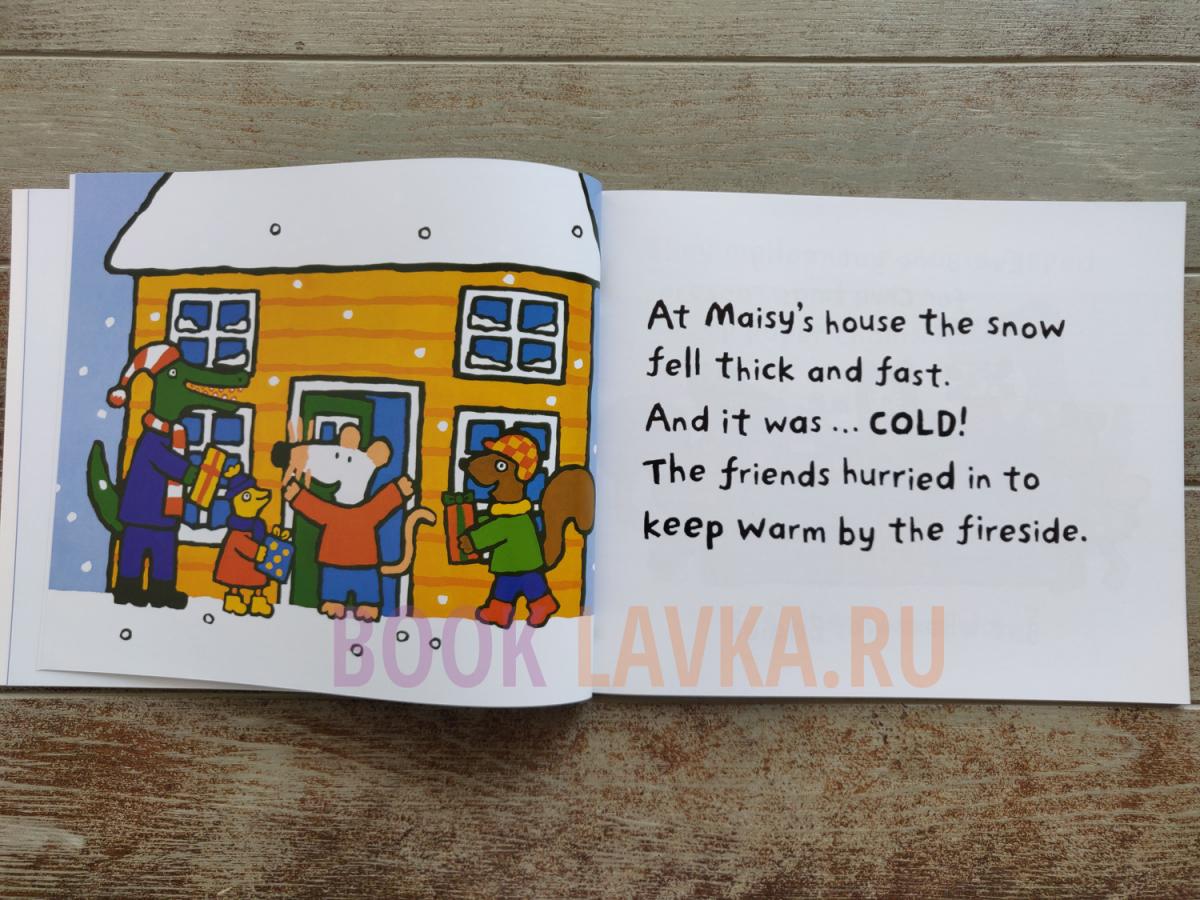 At Maisy's house the snow
fell thick and fast.
And it was ... COLD!
The friends hurried in to
keep warm by the fireside.
BOOK LAVKA.RU